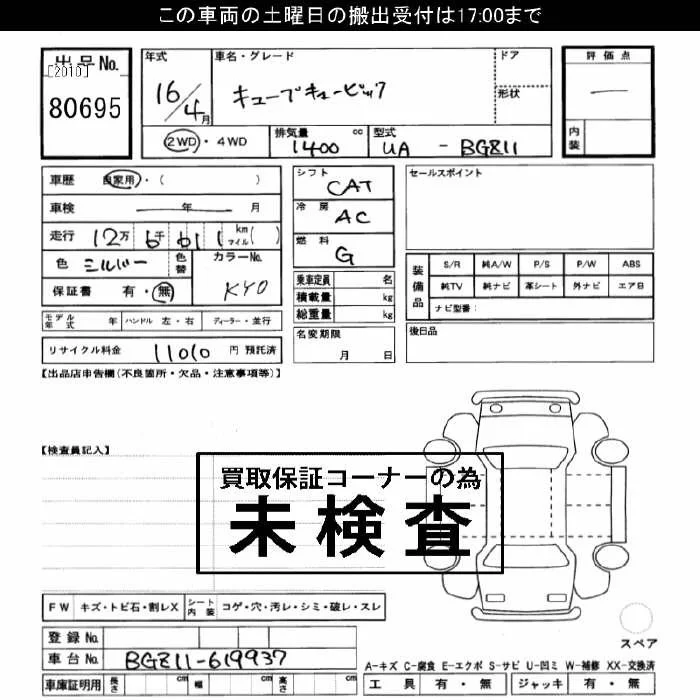 この車両の土曜日の搬出受付は17:00まで
出品No.
[2010]
80695
年式 車名・グレード ドア
16/4月 キューブキュービック 形状
2WD・4WD 排気量 1400 cc 型式 UA - BGZ11
評価点
—
内装
車歴 自家用・( )
車検 年 月
走行 12万6千611 km マイル( )
色 シルバー 色替 カラーNo. KY0
保証書 有・無
モデル年式 年 ハンドル 左・右 ディーラー・並行
リサイクル料金 11010 円 預託済
シフト CAT
冷房 AC
燃料 G
乗車定員 名
積載量 kg
総重量 kg
名変期限
月 日
セールスポイント
装備品 S/R 純A/W P/S P/W ABS
純TV 純ナビ 革シート 外ナビ エアB
ナビ型番:
後日品
【出品店申告欄(不良箇所・欠品・注意事項等)】
【検査員記入】
買取保証コーナーの為
未検査
FW キズ・トビ石・割レX シート内装 コゲ・穴・汚レ・シミ・破レ・スレ
登録No.
車台No. BGZ11-619937
車庫証明用 長さ cm 幅 cm 高さ cm
スペア
A-キズ C-腐食 E-エクボ S-サビ U-凹ミ W-補修 XX-交換済
工具 有・無 ジャッキ 有・無